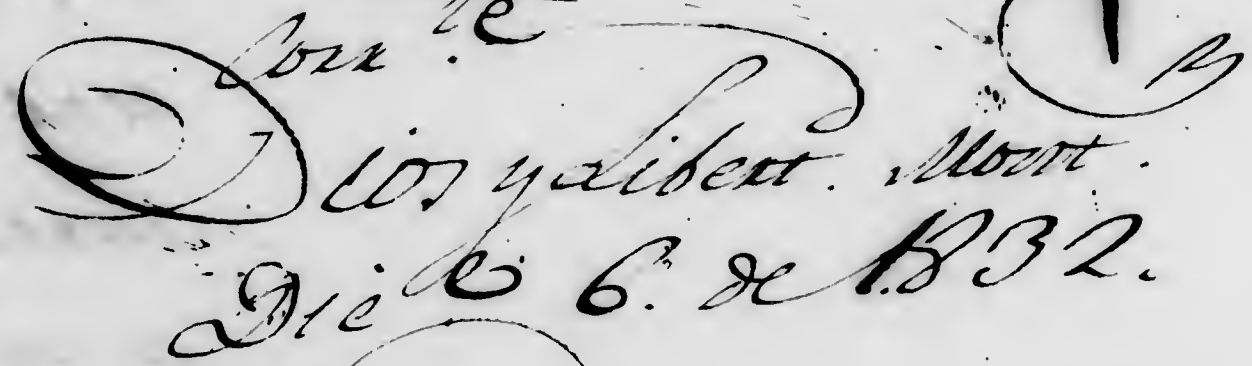 Corr.te
Dios y Libert. Mont.
Dice 6. de 1832.